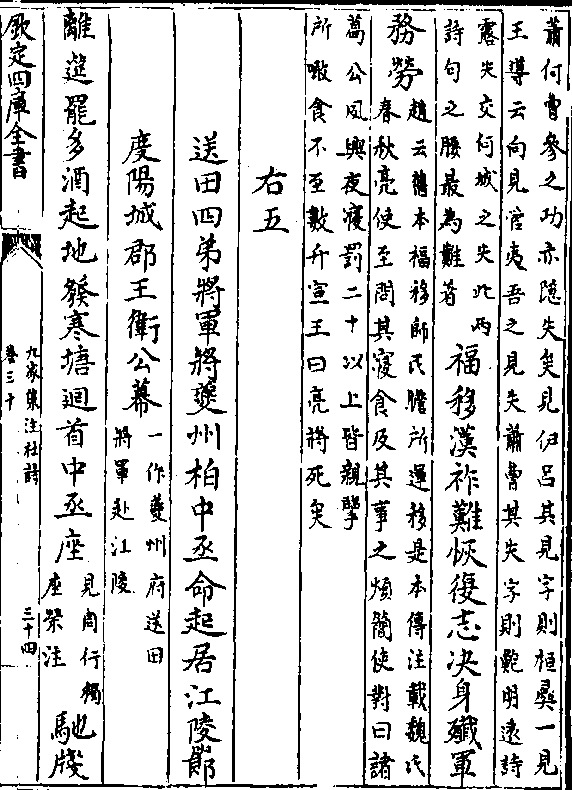 蕭何曹參之功亦隠失矣見伊呂其見字則桓彛一見
王導云向見管夷吾之見失蕭曹其失字則鮑明遠詩
露失交何城之失此兩
詩句之腰最為難著
福移漢祚難恢復志决身殲軍
務勞
趙云舊本福移師民瞻所運移是本傳注載魏氏
春秋亮使至問其寢食及其事之煩簡使對曰諸
葛公夙興夜寢罰二十以上皆親擥
所噉食不至數升宣王曰亮將死矣
右五
送田四弟將軍將夔州柏中丞命起居江陵節
度陽城郡王衛公幕
一作夔州府送田
將軍赴江陵
離筵罷多酒起地發寒塘迴首中丞座
見角行獨
座榮注
馳牋
欽定四庫全書
九家集注杜詩
卷三十
三十四